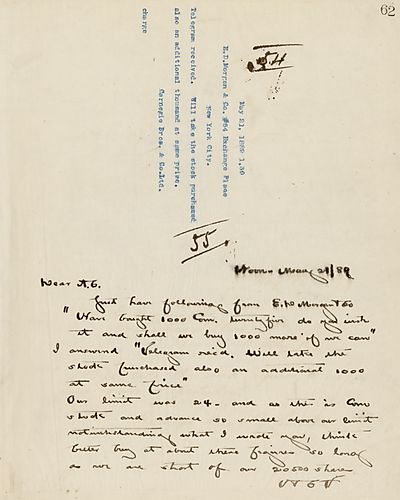 62
54
May 21, 1889 1.30
E.D.Morgan & Co. #54 Exchange Place
New York City.
Telegram received. Will take the stock purchased
also an additional thousand at same price.
charge Carnegie Bros. & Co.Ltd.
55
Noon May 21/89
Dear A.C.
Just have following from E.D. Morgan & Co
"Have bought 1000 Com. twenty five do you wish
it and shall we buy 1000 more if we can"
I answered "Telegram recd. Will take the
stock purchased also an additional 1000
at same price"
Our limit was 24 - and as this is Com
stock and advance so small above our limit
notwithstanding what I wrote you, think
better buy at about these figures so long
as we are short of our 20500 shares